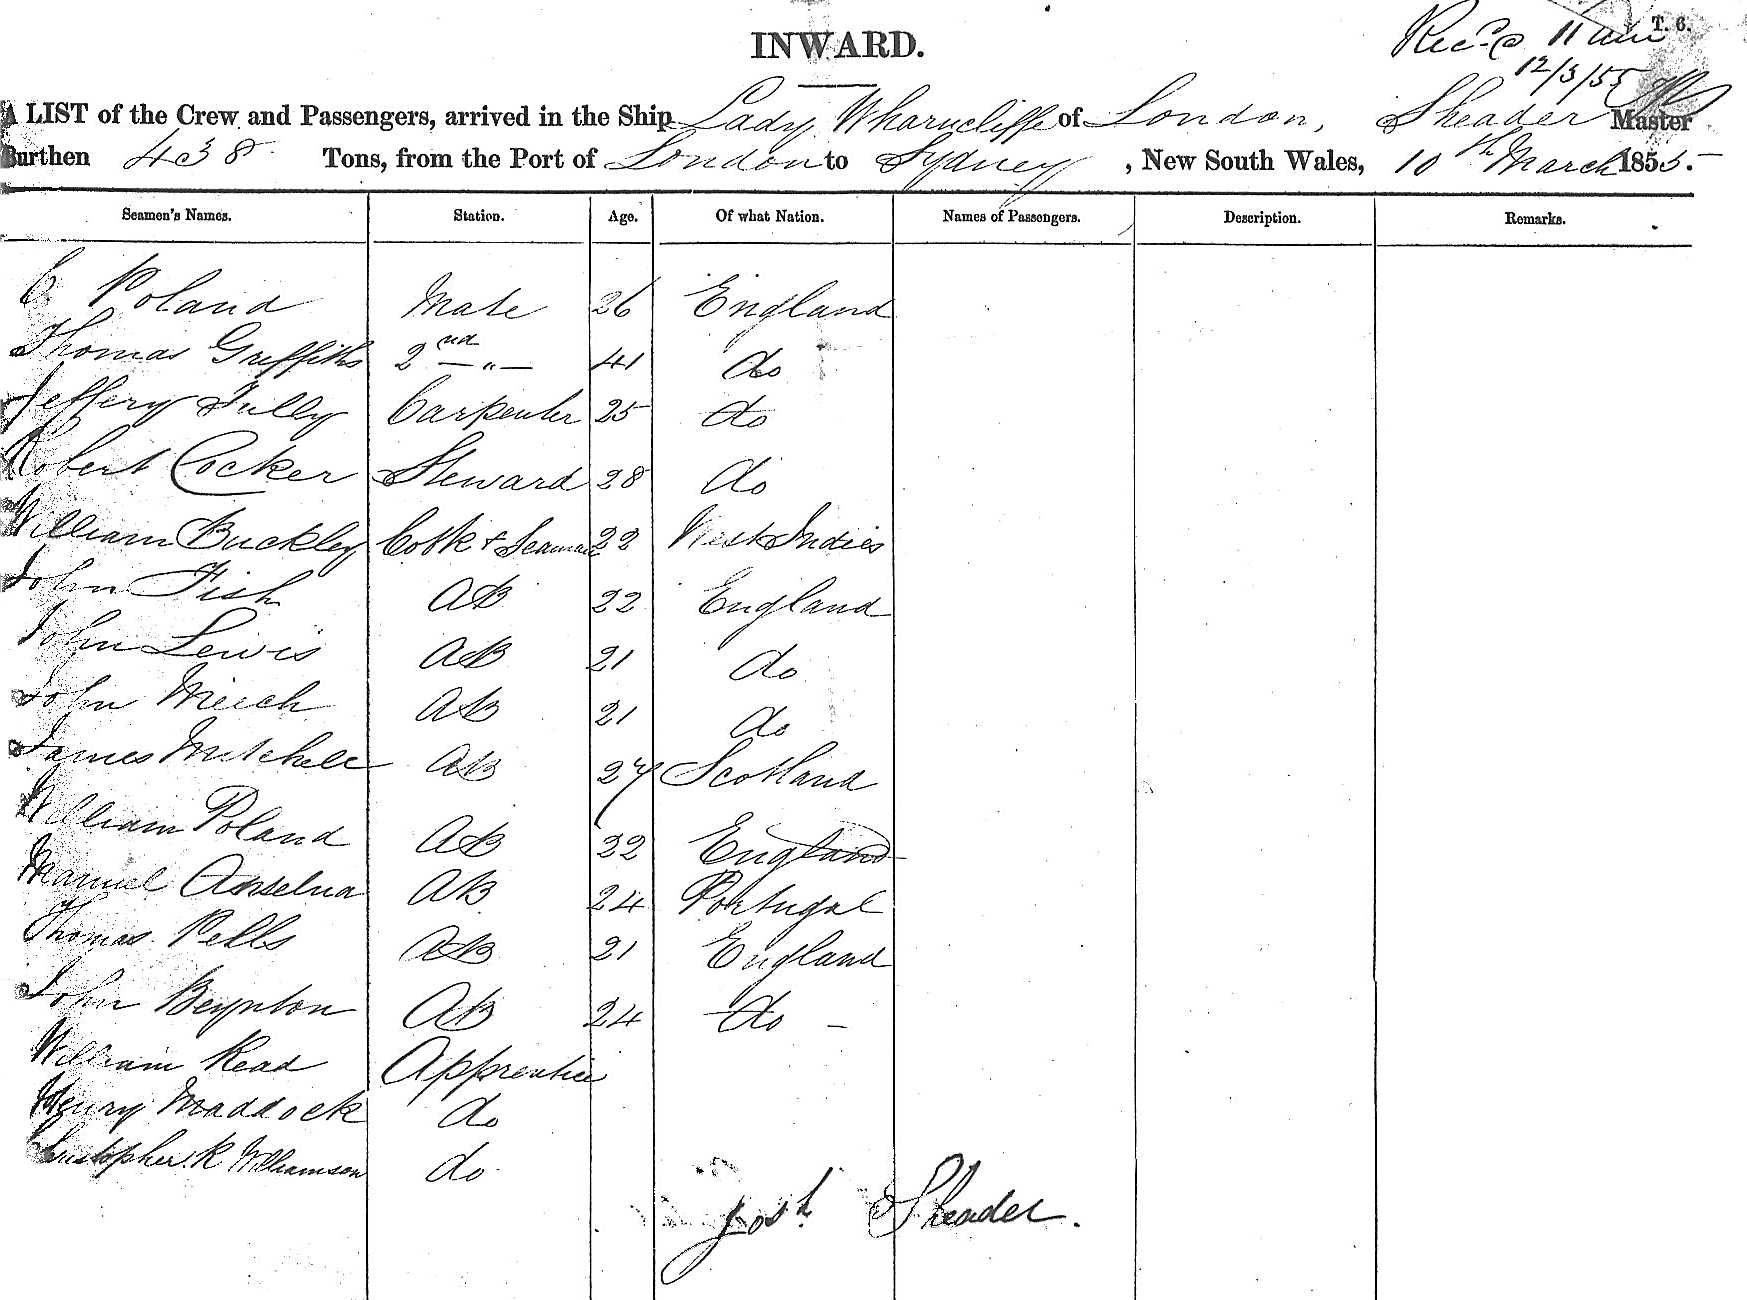 T. 6.
Recd @ 11 am
12/3/55
INWARD.
A LIST of the Crew and Passengers, arrived in the Ship Lady Wharncliffe of London, Sheader Master
Burthen 438 Tons, from the Port of London to Sydney, New South Wales, 10th March 1855.
Seamen's Names. Station. Age. Of what Nation. Names of Passengers. Description. Remarks.
C Poland Mate 26 England
Thomas Griffiths 2nd — „ — 41 do
Jeffery Tully Carpenter 25 do
Robert Cocker Steward 28 do
William Buckley Cook & Seaman 22 West Indies
John Fish AB 22 England
John Lewis AB 21 do
John Meech AB 21 do
James Mitchell AB 27 Scotland
William Poland AB 22 England
Manuel Anselma AB 24 Portugal
Thomas Pells AB 21 England
John Beynton AB 24 do —
William Read Apprentice
Henry Maddock do
Christopher R Williamson do
Josh Sheader.